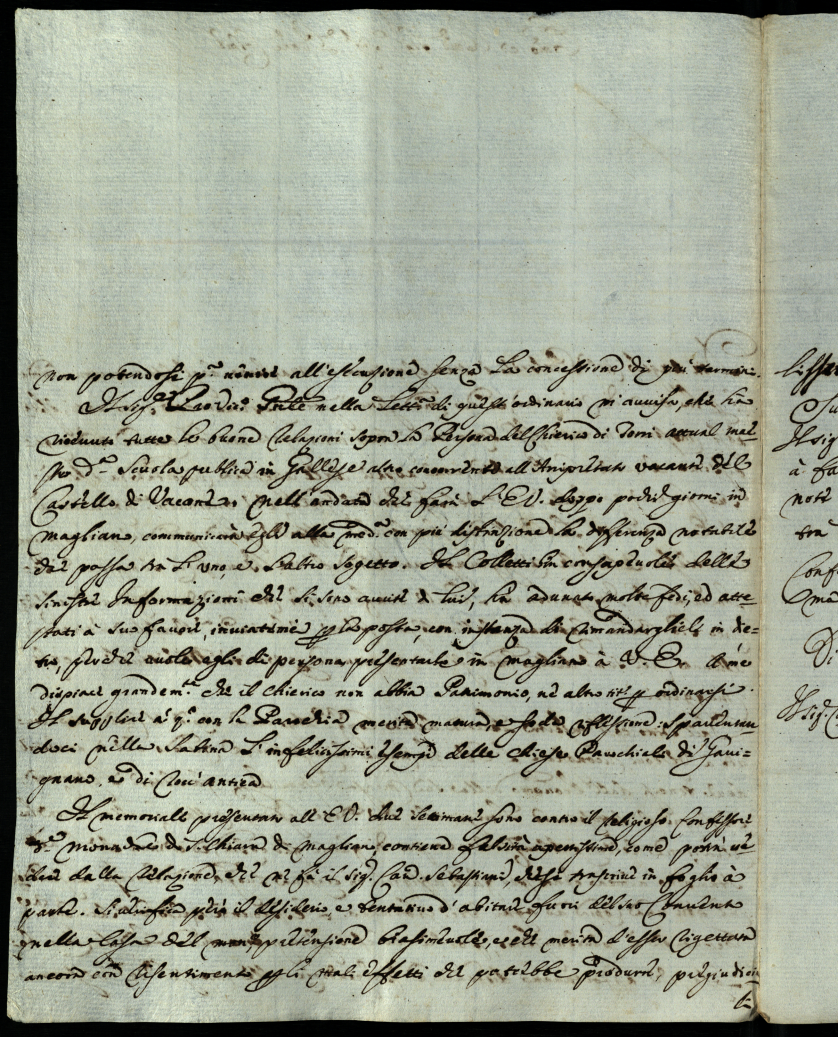 non potendosi p.a venire all'esecuzione senza la concessione di più termini.
Il Sig.r nella Lett.a di quest'ordinario m'avvisa, che ha
ricevuto tutte le buone relazioni sopra la Persona del Chierico di Torri attual mae=
stro d.a Scuola publica in Gallese altro concorrente all'Arcipretato vacante del
Castello di Vacone, e nell'andata che farà l'E.V. doppo pochi giorni in
Magliano, communicarà egli alla med.a con più distinzione la differenza notabile
che passa tra l'uno, e l'altro sogetto. Il Colletti consapevole delle
sinistre Informazioni che si sono avute di lui, ha adunate molte fedi, ed atte=
stati à suo favore, inviatemi p la posta, con instanza di rimandarglieli in die=
tro, perche vuole egli di persona presentarle in Magliano à V.E. A me
dispiace grandem.e che il Chierico non abbia Patrimonio, nè altro tit.o p ordinarsi.
Il supplire à q.o con la Parochia merita matura, e soda riflessione: Spaventan=
doci nella Sabina l'infelicissimi esempi delle Chiese Parochiali di Gavi=
gnano, e di Rocc'antica
Il memoriale presentato all'E.V. due settimane sono contro il Religioso Confessore
d.e Monache di S. Chiara di Magliano contiene falsità apertissime, come potrà ve
dere dalla relazione, che ne fà il Sig. Can. Sebastiani, che trascrive in foglio à
parte. il desiderio, e tentativo d'abitare fuori del suo Convento
nella Casa del pretensione biasimevole, e che merita d'esser rigettata
ancora con risentimento p li mali effetti che potrebbe produrre, pregiudicia
li